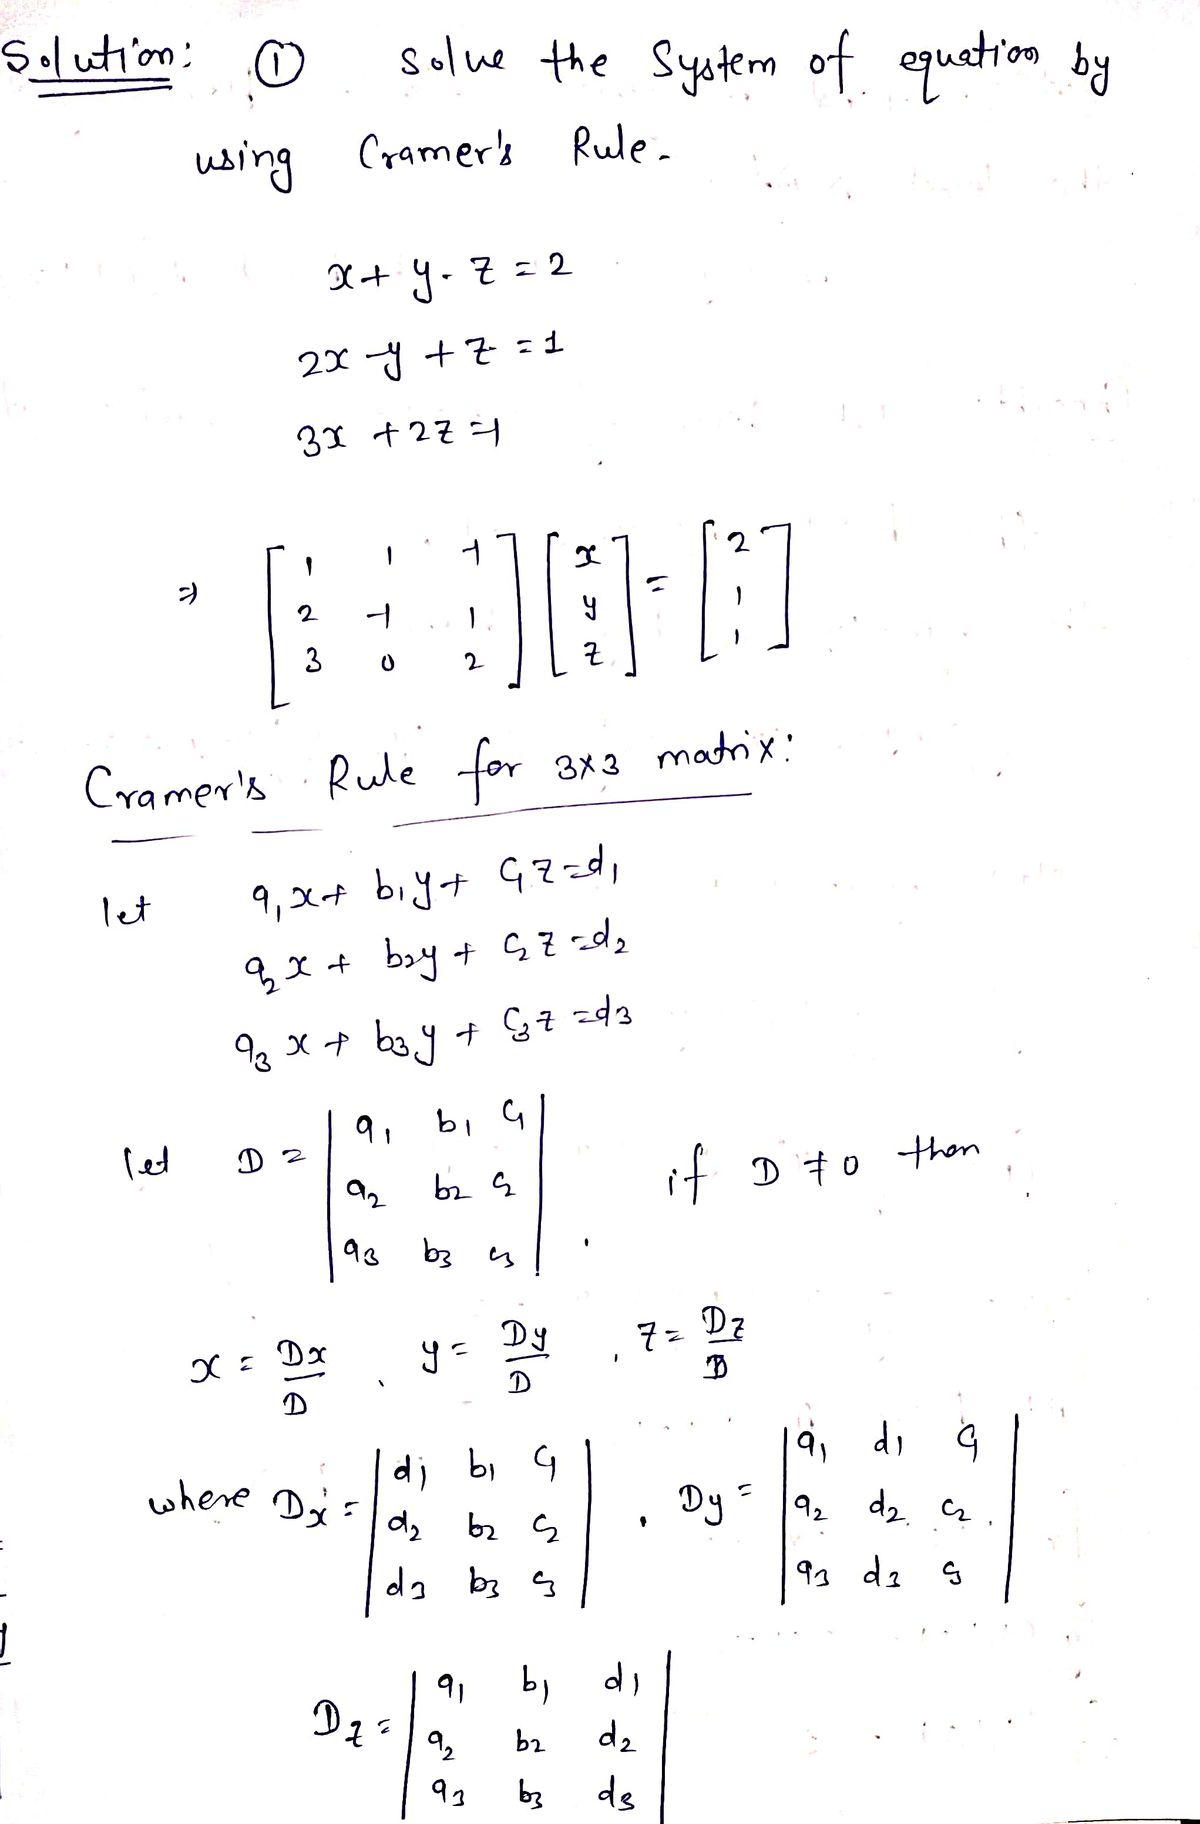 Solution: ① Solve the System of equation by
using Cramer's Rule.
x + y - z = 2
2x - y + z = 1
3x + 2z = 1
⇒ [1 1 -1; 2 -1 1; 3 0 2] [x; y; z] = [2; 1; 1]
Cramer's Rule for 3x3 matrix:
let a₁x + b₁y + c₁z = d₁
a₂x + b₂y + c₂z = d₂
a₃x + b₃y + c₃z = d₃
let D = |a₁ b₁ c₁; a₂ b₂ c₂; a₃ b₃ c₃|. if D ≠ 0 then
x = Dx/D, y = Dy/D, z = Dz/D
where Dx = |d₁ b₁ c₁; d₂ b₂ c₂; d₃ b₃ c₃|, Dy = |a₁ d₁ c₁; a₂ d₂ c₂; a₃ d₃ c₃|
Dz = |a₁ b₁ d₁; a₂ b₂ d₂; a₃ b₃ d₃|